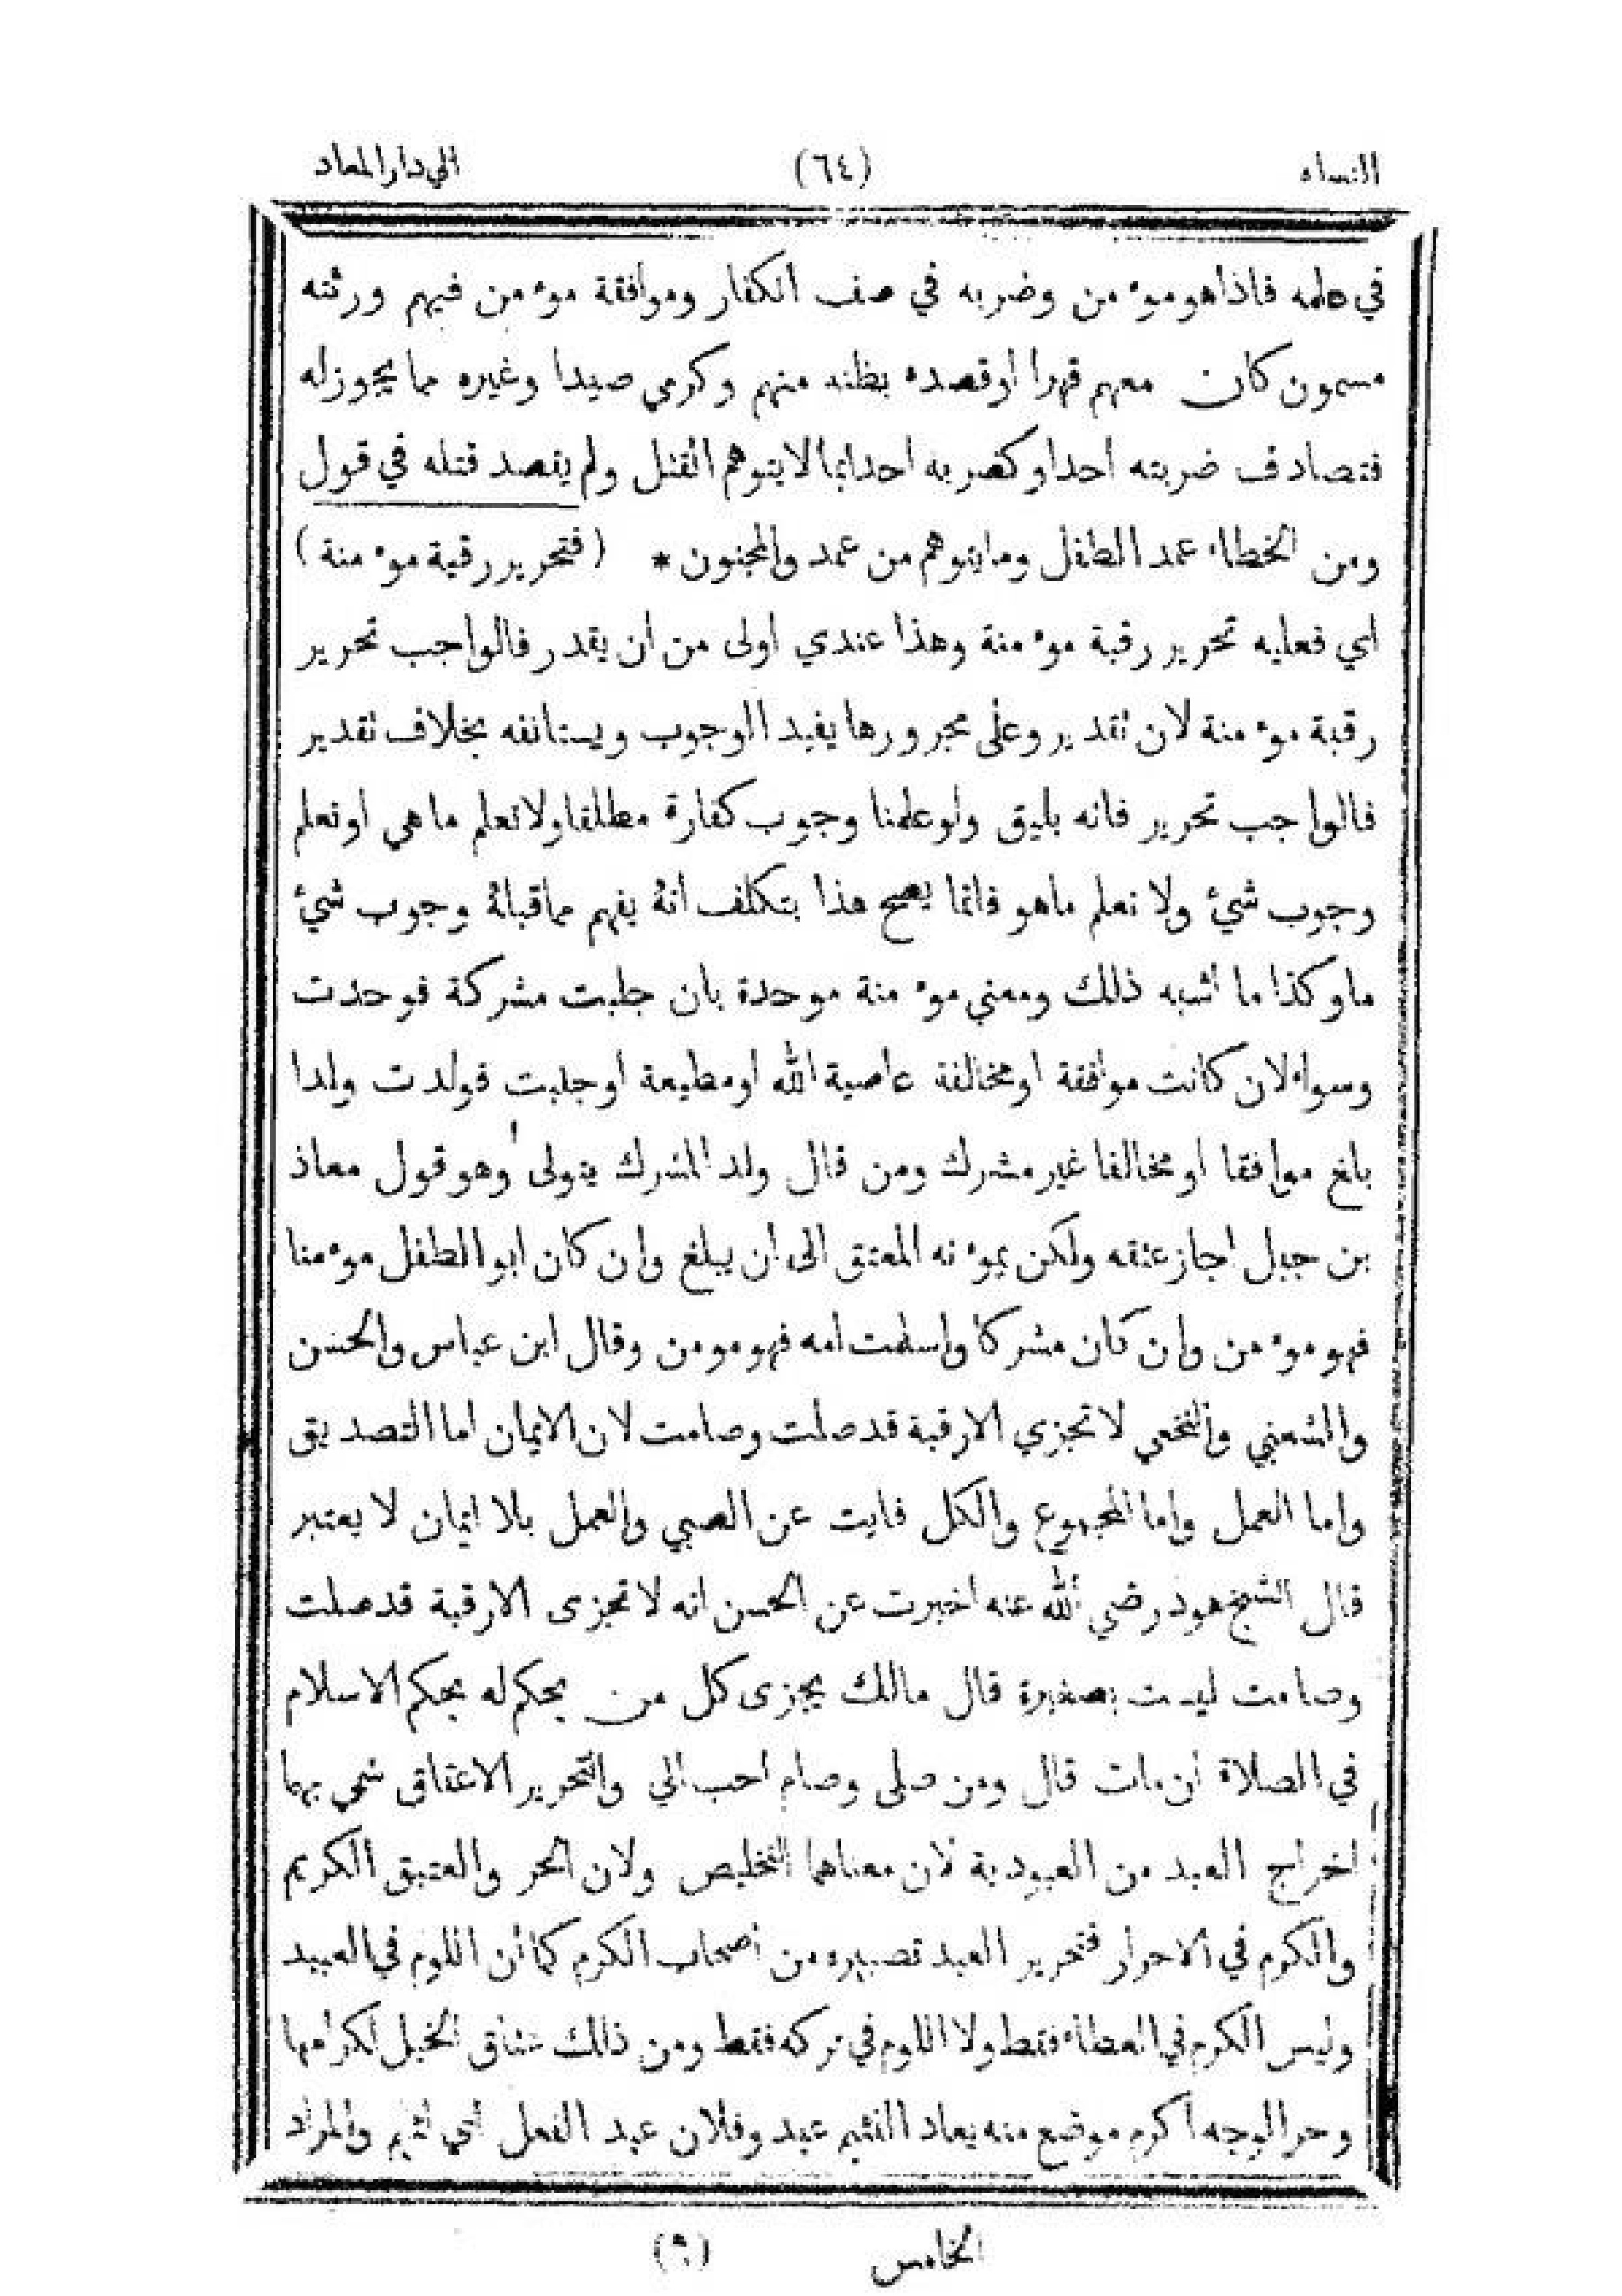 النساء (٦٤) الى دار المعاد
في علمه فاذا هو موءمن وضربه في صف الكفار وموافقة موءمن فيهم ورثته
مسمون كان معهم قهرا او قصده بظنه منهم وكرمي صيدا وغيره مما يجوز له
فتصادف ضربته احدا وكضربه احدا بما لا يتوهم القتل ولم يقصد قتله في قول
ومن الخطاء عمد الطفل وما يتوهم من عمد والمجنون * (فتحرير رقبة موءمنة)
اي فعليه تحرير رقبة موءمنة وهذا عندي اولى من ان يقدر فالواجب تحرير
رقبة موءمنة لان تقدير وعلى مجرورها يفيد الوجوب ويستانفه بخلاف تقدير
فالواجب تحرير فانه يليق ولو علمنا وجوب كفارة مطلقا ولا نعلم ما هي او نعلم
وجوب شيئ ولا نعلم ما هو فانما يصح هذا بتكلف انه يفهم مما قبله وجوب شيئ
ما وكذا ما اشبه ذلك ومعنى موءمنة موحدة بان جلبت مشركة فوحدت
وسواء لان كانت موافقة او مخالفة عاصية الله او مطيعة او جلبت فولدت ولدا
بلغ موافقا او مخالفا غير مشرك ومن قال ولد المشرك يتولى وهو قول معاذ
بن جبل اجاز عتقه ولكن يموءنه المعتق الى ان يبلغ وان كان ابو الطفل موءمنا
فهو موءمن وان كان مشركا واسلمت امه فهو مومن وقال ابن عباس والحسن
والشعبي والنخعي لا تجزي الا رقبة قد صلت وصامت لان الايمان اما التصديق
واما العمل واما المجموع والكل فايت عن الصبي والعمل بلا ايمان لا يعتبر
قال الشيخ هود رضي الله عنه اخبرت عن الحسن انه لا تجزى الا رقبة قد صلت
وصامت ليست بصغيرة قال مالك يجزى كل من يحكم له بحكم الاسلام
في الصلاة ان مات قال ومن صلى وصام احب الي والتحرير الاعتاق سمي بهما
اخراج العبد من العبودية لان معناهما التخليص ولان الحر والعتيق الكريم
والكرم في الاحرار فتحرير العبد تصييره من اصحاب الكرم كما ان اللوم في العبيد
وليس الكرم في العطاء فقط ولا اللوم في تركه فقط ومن ذلك عتاق الخيل لكرامها
وحر الوجه اكرم موضع منه يعاد اللئيم عبد وفلان عبد الفعل اي لئيم والمراد
الخامس (٩)